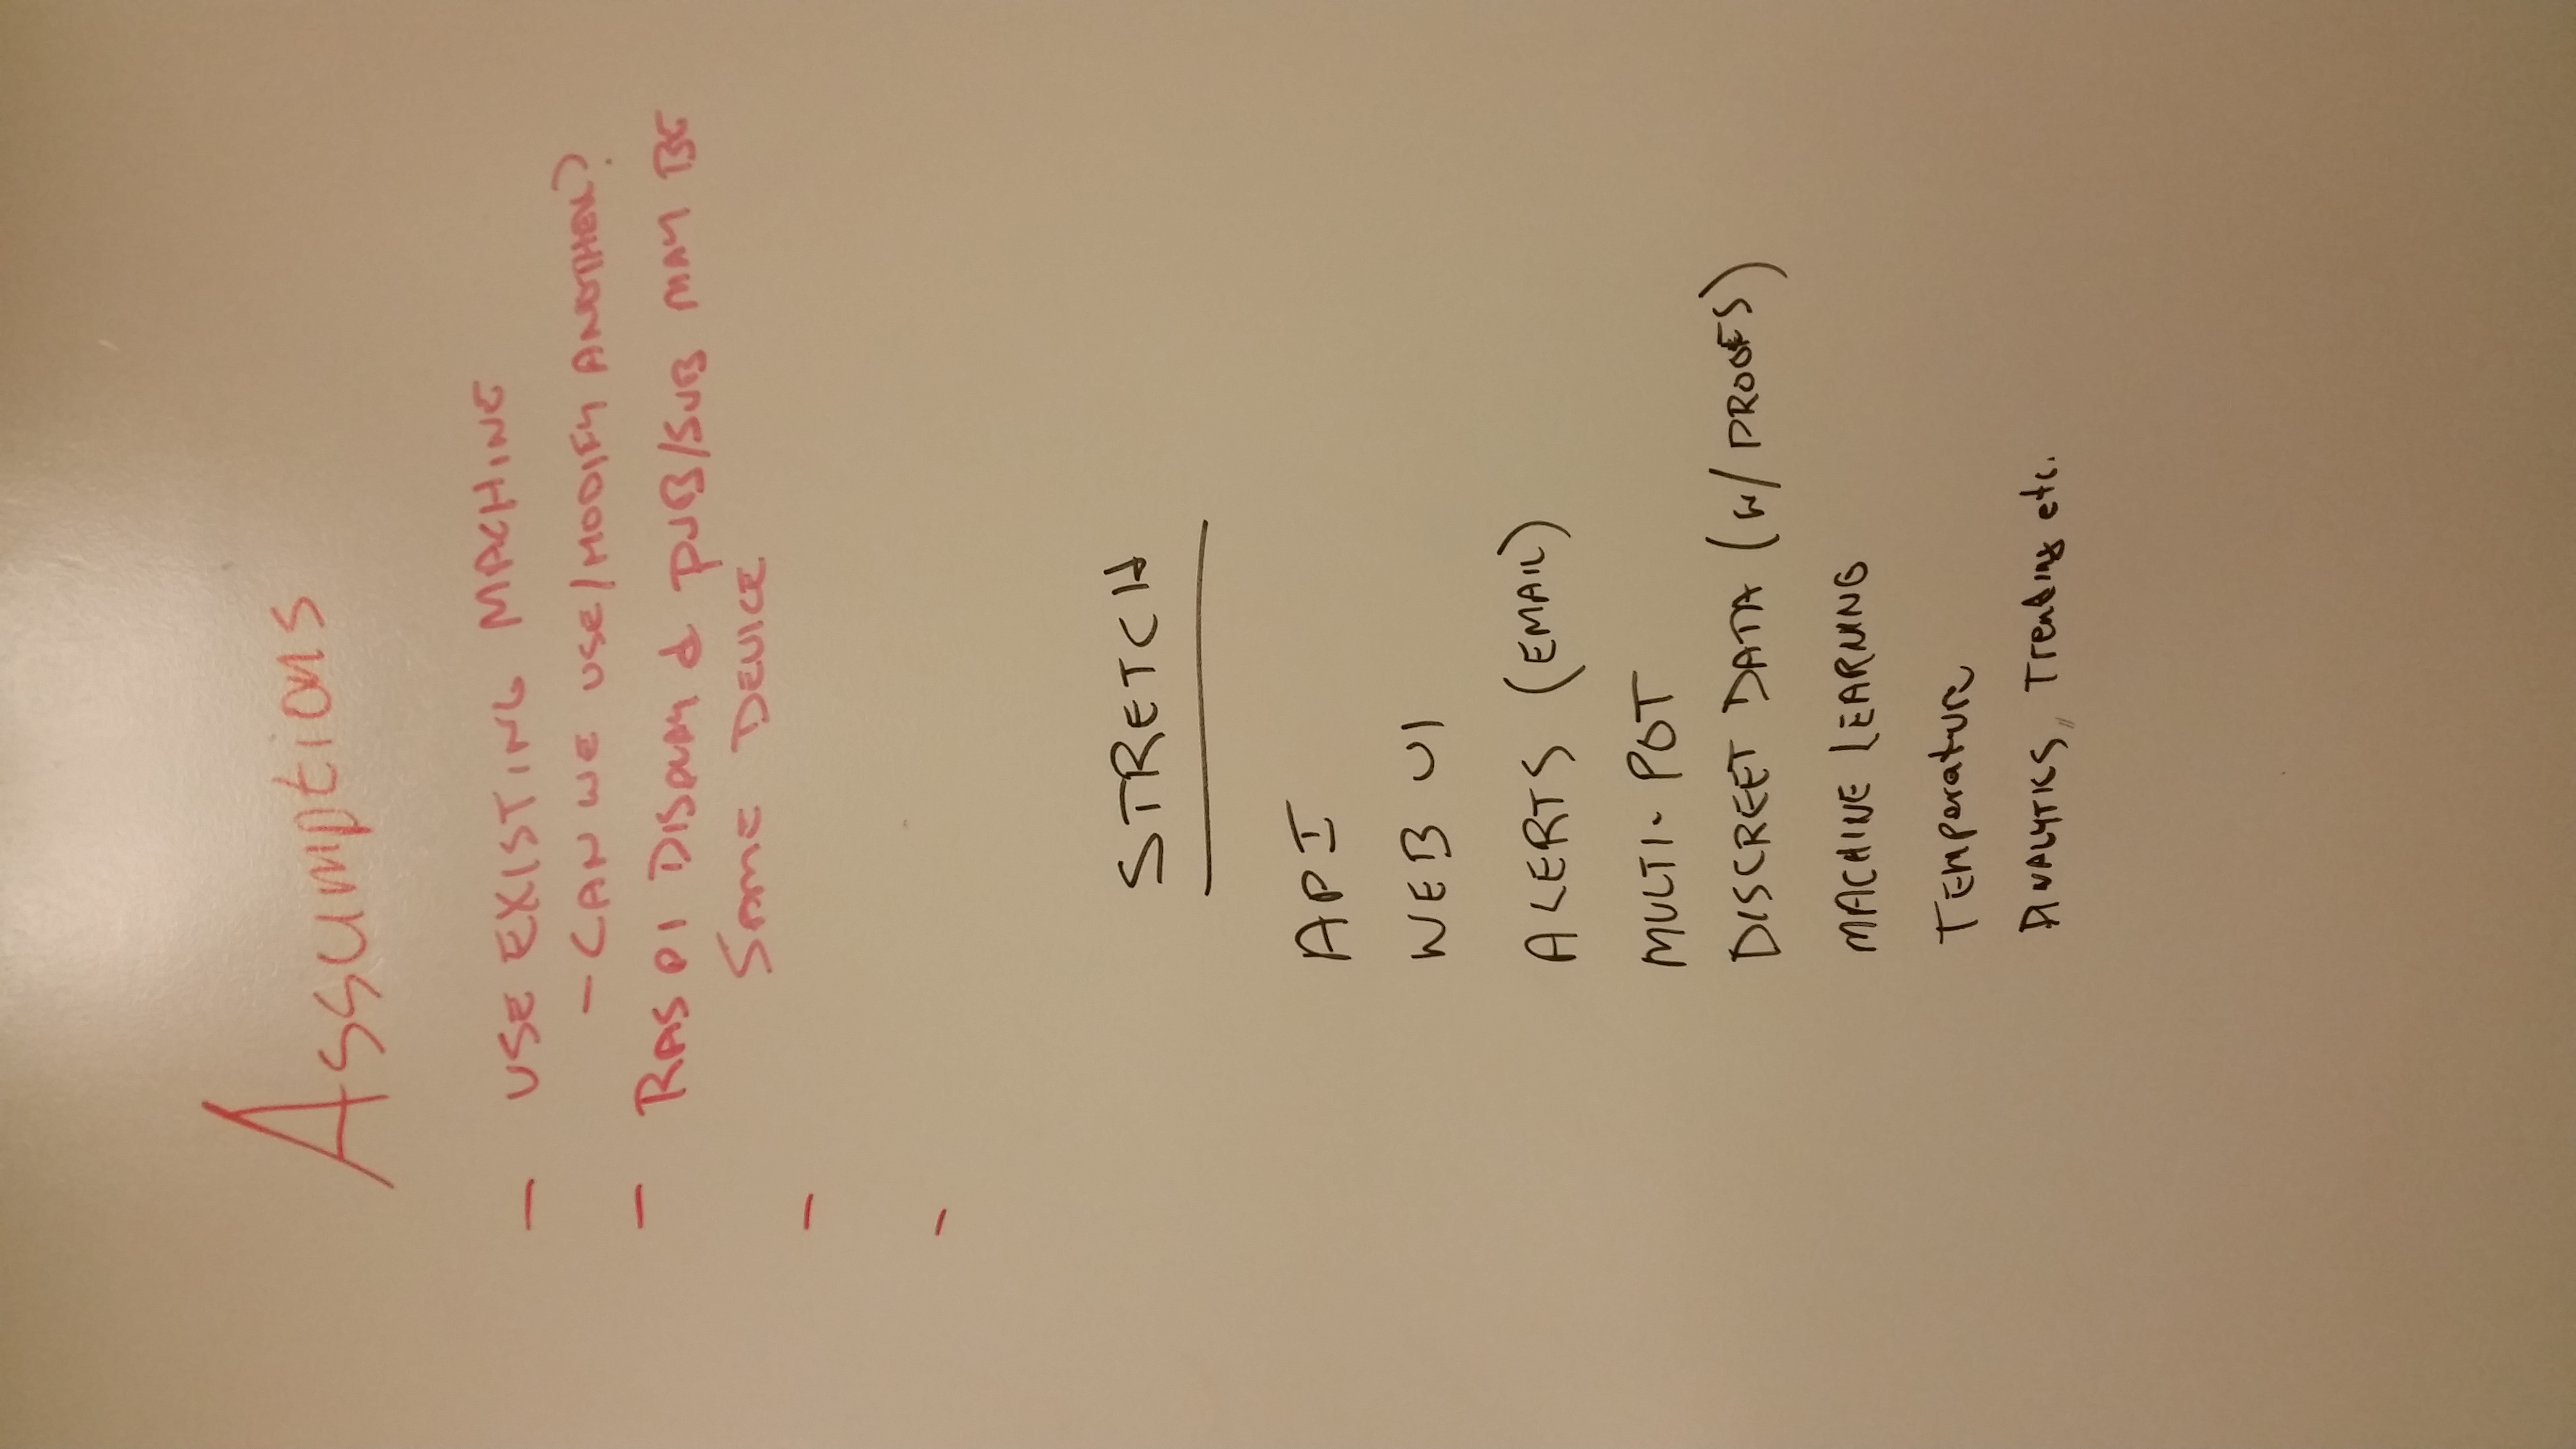 Assumptions
- USE EXISTING MACHINE
- CAN WE USE/MODIFY ANOTHER?
- RAS PI DISPLAY & PUB/SUB MAY BE
SAME DEVICE
-
-
STRETCH
API
WEB UI
ALERTS (EMAIL)
MULTI-POT
DISCREET DATA (W/ PROBES)
MACHINE LEARNING
Temperature
ANALYTICS, Trending etc.